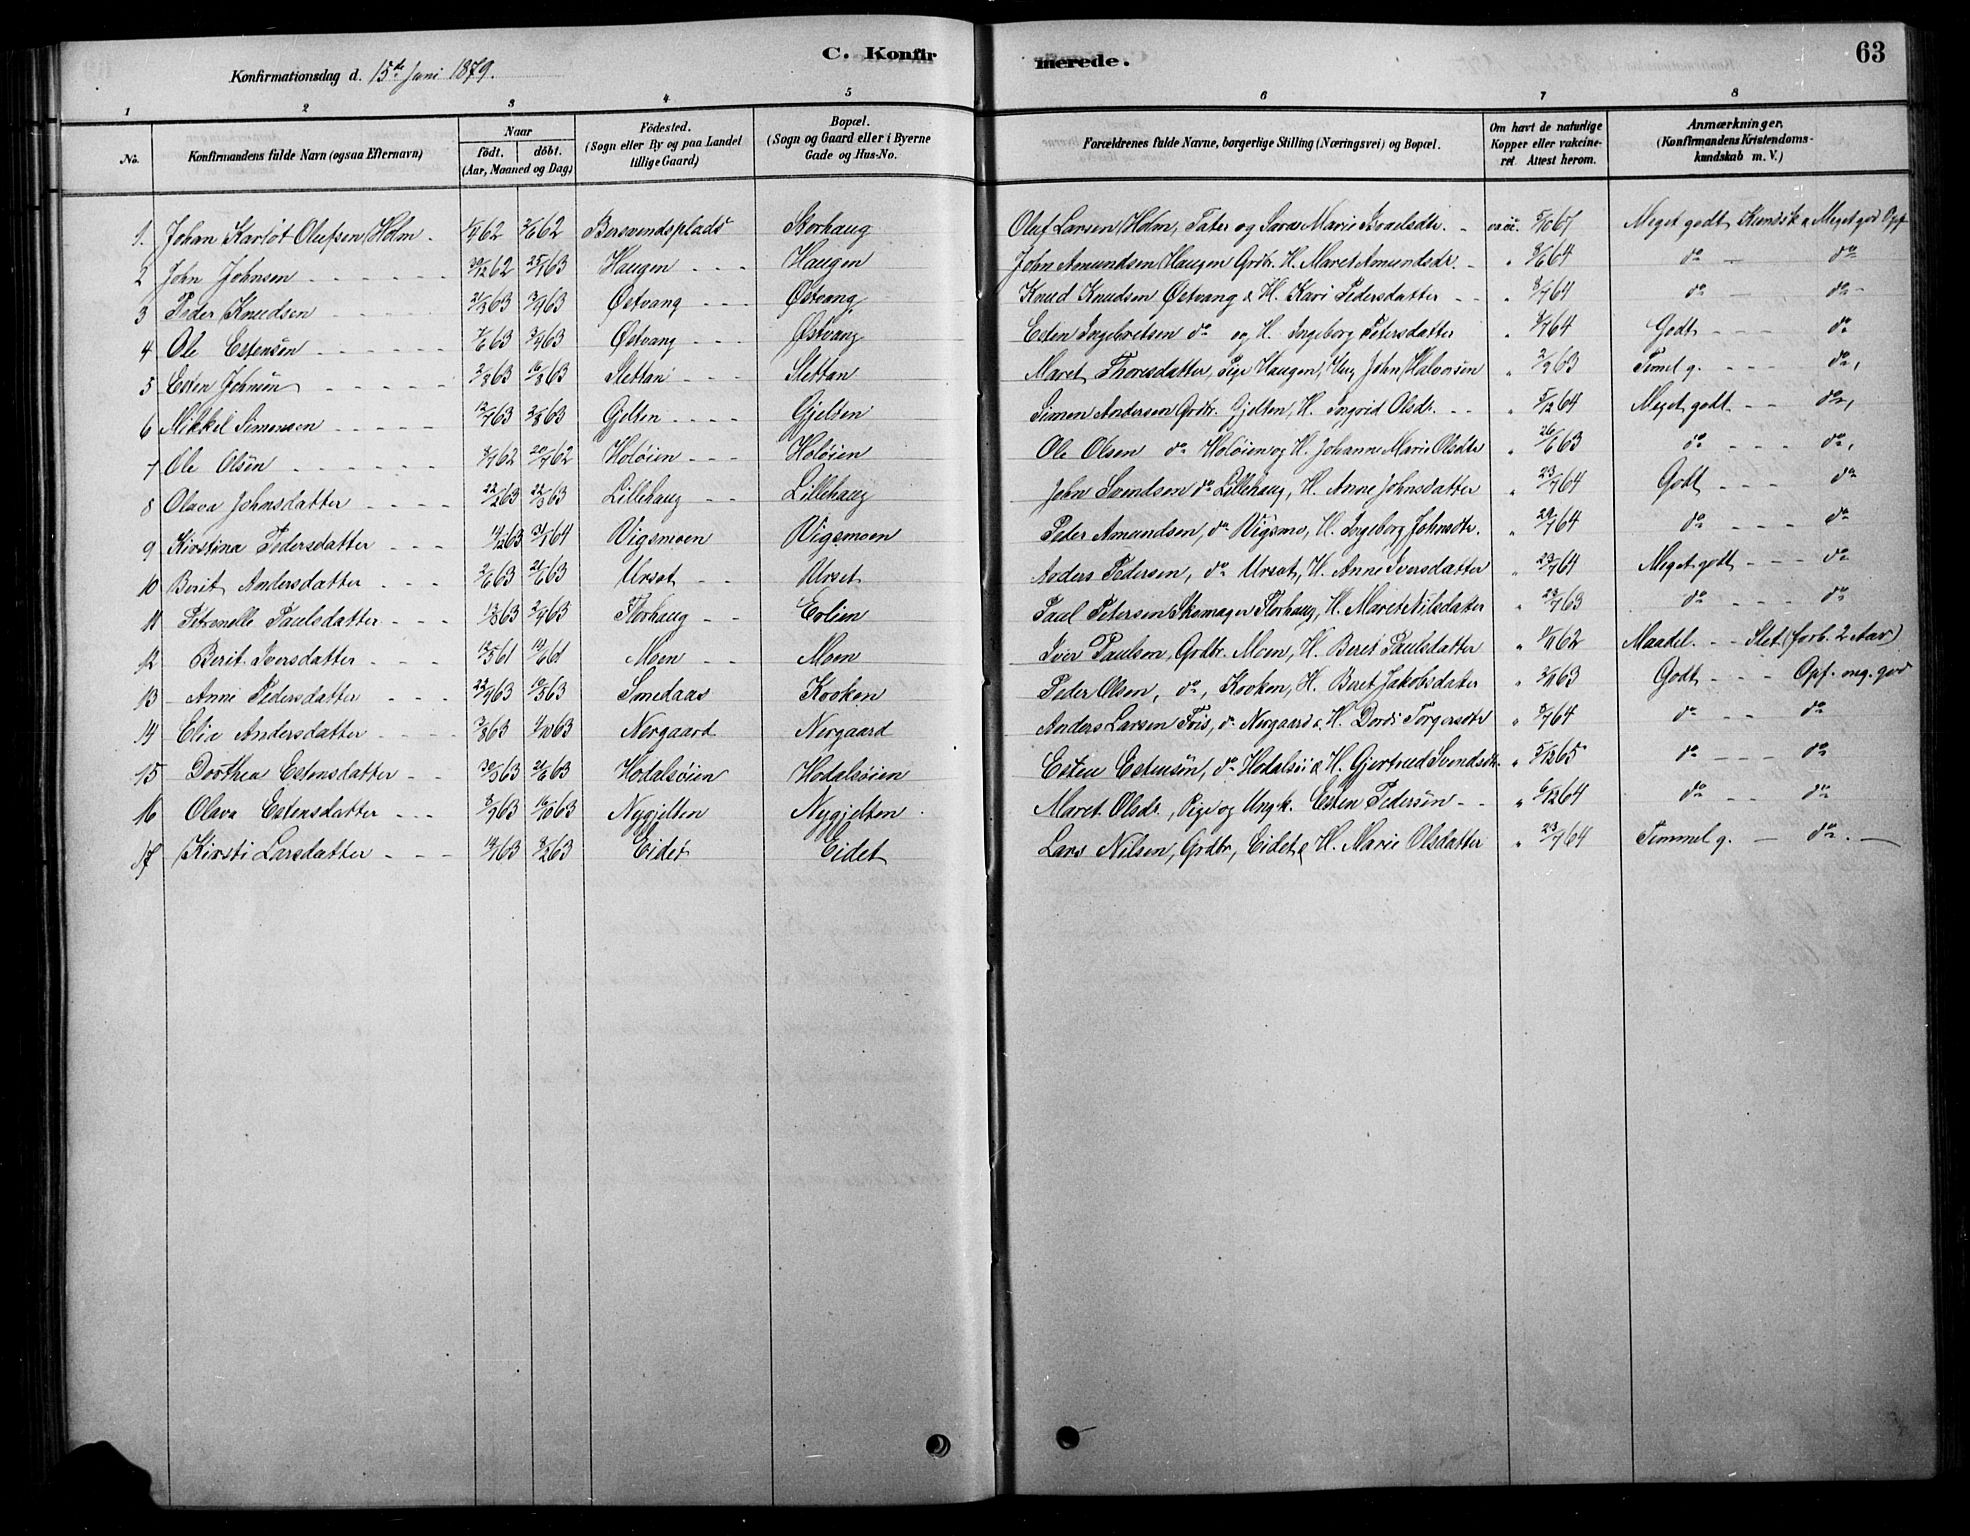 C. Konfirmerede.
63
Konfirmationsdag d. 15de Juni 1879.
1 2 3 4 5 6 7 8
No.
Konfirmandens fulde Navn (ogsaa Efternavn)
Naar
födt. döbt.
(Aar, Maaned og Dag)
Födested.
(Sogn eller By og paa Landet
tillige Gaard)
Bopæl.
(Sogn og Gaard eller i Byerne
Gade og Hus-No.
Forældrenes fulde Navne, borgerlige Stilling (Næringsvei) og Bopæl.
Om havt de naturlige
Kopper eller vakcine-
ret Attest herom.
Anmærkninger,
(Konfirmandens Kristendoms-
kundskab m. V.)
1. Johan Karlot Olufsen Holm 62 62 Bersvendsplads Storhaug Oluf Larsen Holm, Tater og Sara Marie Israelsdtr. vacc. 67 Meget godt Kundsk & Meget god Opf
2 John Johnsen 30/12 62 25/1 63 Haugen Haugen John Amundsen Haugen Grdbr. H. Maret Amundsdr. " 64 do do
3 Peder Knudsen 63 63 Østvang Østvang Knud Knudsen Østvang & H. Kari Pedersdatter " 64 do do
4 Ole Estensen 63 63 Østvang Østvang Esten Ingebretsen do og H. Ingeborg Petersdatter " 64 Godt do
5 Esten Johnsen 63 63 Slettan Slettan Maret Thoresdatter, Pige Haugen, Ung John Halvorsen " 63 Temel g. do,
6 Mikkel Simensen 63 63 Gjelten Gjelten Simen Andersen Grdbr. Gjelten, H. Ingrid Olsdr. " 5/12 64 Meget godt do,
7 Ole Olsen 62 62 Holøien Holøien Ole Olsen do Holøien og H. Johanne Marie Olsdtr " 26/6 63 do do,
8 Olava Johnsdatter 22/2 63 22/3 63 Lillehaug Lillehaug John Svendsen do Lillehaug, H. Anne Johnsdatter " 23/7 64 Godt do
9 Kirstina Pedersdatter 63 64 Vigsmoen Vigsmoen Peter Amundsen, do Vigsmo, H. Ingeborg Johnsdtr. " 29/7 64 do do
10 Berit Andersdatter 63 21/6 63 Urset Urset Anders Pedersen, do Urset, H. Anne Iversdatter " 23/7 64 Meget godt do
11 Petronelle Paulsdatter 63 63 Storhaug Evlien Paul Petersen Skomager Storhaug, H. Maret Nilsdatter " 63 do do
12 Berit Iversdatter 61 61 Moen Moen Iver Paulsen, Grdbr. Moen, H. Beret Paulsdatter " 62 Maadel. Slet (forb. 2 Aar)
13 Anne Pedersdatter 63 63 Smedaas Kroken Peder Olsen, do, Kroken, H. Beret Jakobsdatter " 63 Godt Opf. meg. god
14 Elie Andersdatter 63 63 Nergaard Nergaard Anders Larsen Fris, do Nergaard & H. Dordi Torgersdtr " 64 do do
15 Dorthea Estensdatter 30/3 63 21/6 63 Hodalsøien Hodalsøien Esten Estensen, do Hodalsøi & H. Gjertrud Svendsdtr. " 5/12 65 do do
16 Olava Estensdatter 63 63 Nygjelten Nygjelten Maret Olsdr, Pige og Ungk. Esten Pedersen " 64 do do
17 Kirsti Larsdatter 63 63 Eidet Eidet Lars Nilsen, Grdbr, Eidet & H. Marie Olsdatter " 23/7 64 Temmel g. do